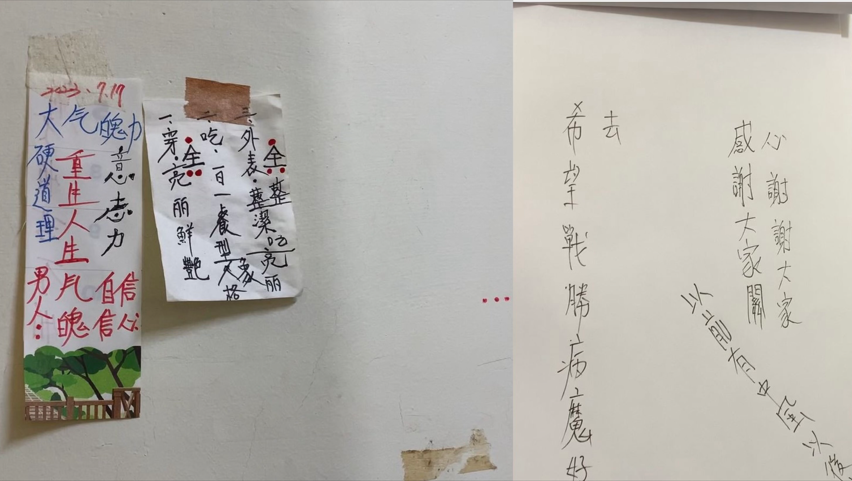 2023.7.19
大气魄力
硬道理
重生人生
意志力
男人:气魄自信
信心
三、外表·整潔亮丽
全整
二、吃、一日一餐型
人格
一、穿·亮丽鮮艷
全
去
希望戰勝病魔好
感謝大家關
心謝謝大家
以前有中風以後